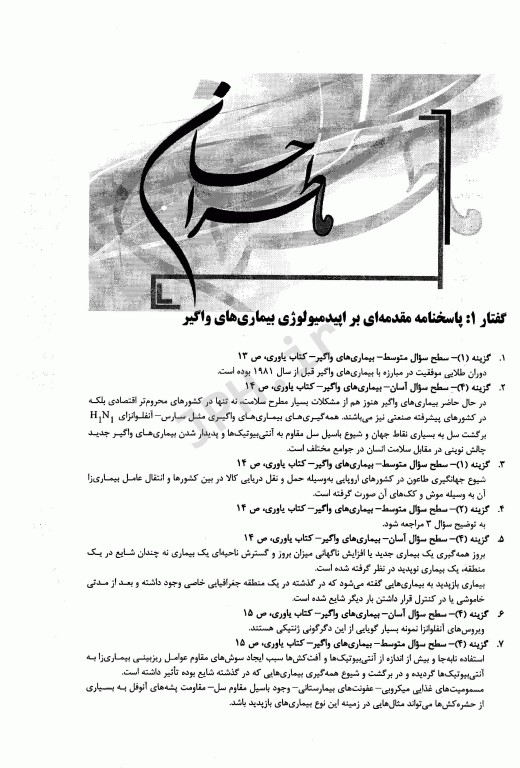 ماطراحان
گفتار ۱: پاسخنامه مقدمه‌ای بر اپیدمیولوژی بیماری‌های واگیر
۱. گزینه (۱)– سطح سؤال متوسط– بیماری‌های واگیر– کتاب یاوری، ص ۱۳
دوران طلایی موفقیت در مبارزه با بیماری‌های واگیر قبل از سال ۱۹۸۱ بوده است.
۲. گزینه (۴)– سطح سؤال آسان– بیماری‌های واگیر– کتاب یاوری، ص ۱۴
در حال حاضر بیماری‌های واگیر هنوز هم از مشکلات بسیار مطرح سلامت، نه تنها در کشورهای محروم‌تر اقتصادی بلکه
در کشورهای پیشرفته صنعتی نیز می‌باشند. همه‌گیری‌های بیماری‌های واگیری مثل سارس– آنفلوانزای H1N1
برگشت سل به بسیاری نقاط جهان و شیوع باسیل سل مقاوم به آنتی‌بیوتیک‌ها و پدیدار شدن بیماری‌های واگیر جدید
چالش نوینی در مقابل سلامت انسان در جوامع مختلف است.
۳. گزینه (۱)– سطح سؤال متوسط– بیماری‌های واگیر– کتاب یاوری، ص ۱۴
شیوع جهانگیری طاعون در کشورهای اروپایی به‌وسیله حمل و نقل دریایی کالا در بین کشورها و انتقال عامل بیماری‌زا
آن به وسیله موش و کک‌های آن صورت گرفته است.
۴. گزینه (۲)– سطح سؤال متوسط– بیماری‌های واگیر– کتاب یاوری، ص ۱۴
به توضیح سؤال ۳ مراجعه شود.
۵. گزینه (۴)– سطح سؤال آسان– بیماری‌های واگیر– کتاب یاوری، ص ۱۴
بروز همه‌گیری یک بیماری جدید یا افزایش ناگهانی میزان بروز و گسترش ناحیه‌ای یک بیماری نه چندان شایع در یک
منطقه، یک بیماری نوپدید در نظر گرفته شده است.
بیماری بازپدید به بیماری‌هایی گفته می‌شود که در گذشته در یک منطقه جغرافیایی خاصی وجود داشته و بعد از مدتی
خاموشی یا در کنترل قرار داشتن بار دیگر شایع شده است.
۶. گزینه (۴)– سطح سؤال آسان– بیماری‌های واگیر– کتاب یاوری، ص ۱۵
ویروس‌های آنفلوانزا نمونه بسیار گویایی از این دگرگونی ژنتیکی هستند.
۷. گزینه (۴)– سطح سؤال متوسط– بیماری‌های واگیر– کتاب یاوری، ص ۱۵
استفاده نابه‌جا و بیش از اندازه از آنتی‌بیوتیک‌ها و آفت‌کش‌ها سبب ایجاد سوش‌های مقاوم عوامل ریزبینی بیماری‌زا به
آنتی‌بیوتیک‌ها گردیده و در برگشت و شیوع همه‌گیری بیماری‌هایی که در گذشته شایع بوده تأثیر داشته است.
مسمومیت‌های غذایی میکروبی– عفونت‌های بیمارستانی– وجود باسیل مقاوم سل– مقاومت پشه‌های آنوفل به بسیاری
از حشره‌کش‌ها می‌تواند مثال‌هایی در زمینه این نوع بیماری‌های بازپدید باشد.